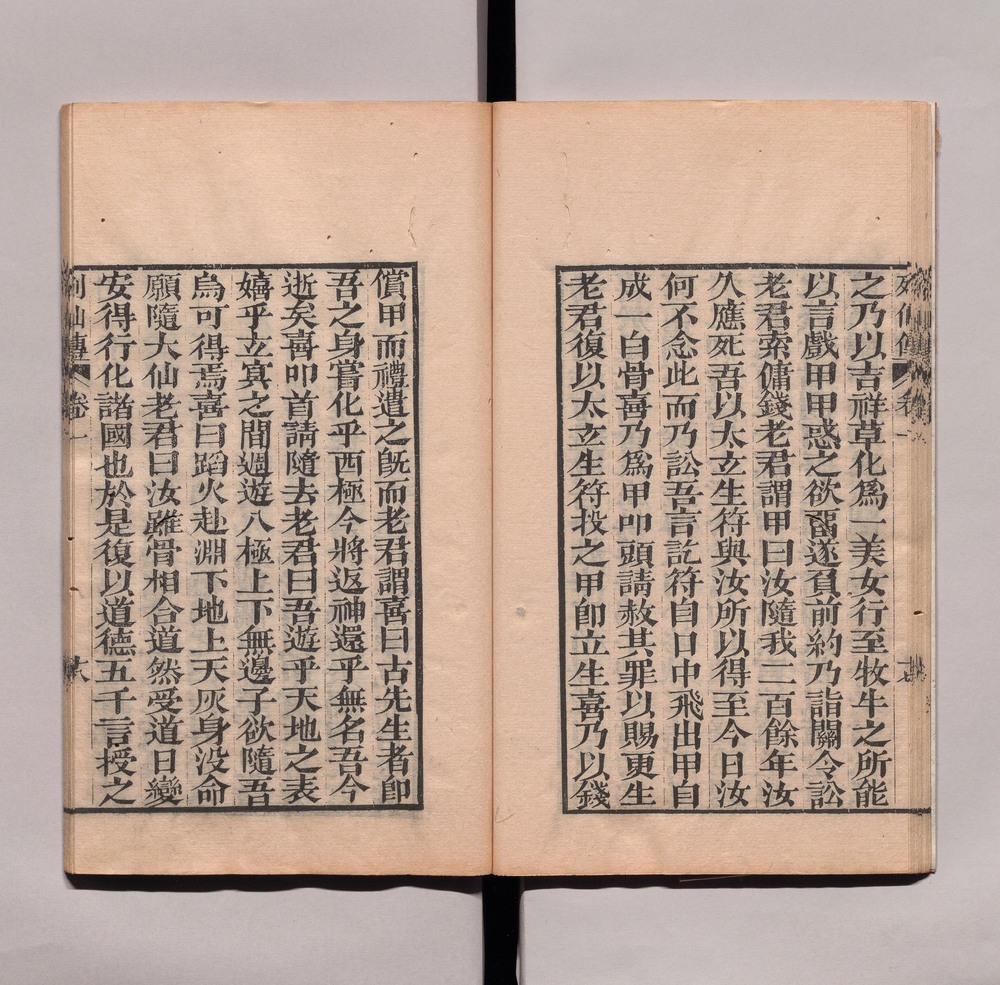 之乃以吉祥草化爲一美女行至牧牛之所能
以言戲甲甲惑之欲畱遂負前約乃詣關令訟
老君索傭錢老君謂甲曰汝隨我二百餘年汝
久應死吾以太玄生符與汝所以得至今日汝
何不念此而乃訟吾言訖符自口中飛出甲自
成一白骨喜乃爲甲叩頭請赦其罪以賜更生
老君復以太玄生符投之甲卽立生喜乃以錢
償甲而禮遣之旣而老君謂喜曰古先生者卽
吾之身嘗化乎西極今將返神還乎無名吾今
逝矣喜叩首請隨去老君曰吾遊乎天地之表
嬉乎玄冥之間週遊八極上下無邊子欲隨吾
烏可得焉喜曰蹈火赴淵下地上天灰身没命
願隨大仙老君曰汝雖骨相合道然受道日變
安得行化諸國也於是復以道德五千言授之
列仙傳 卷一